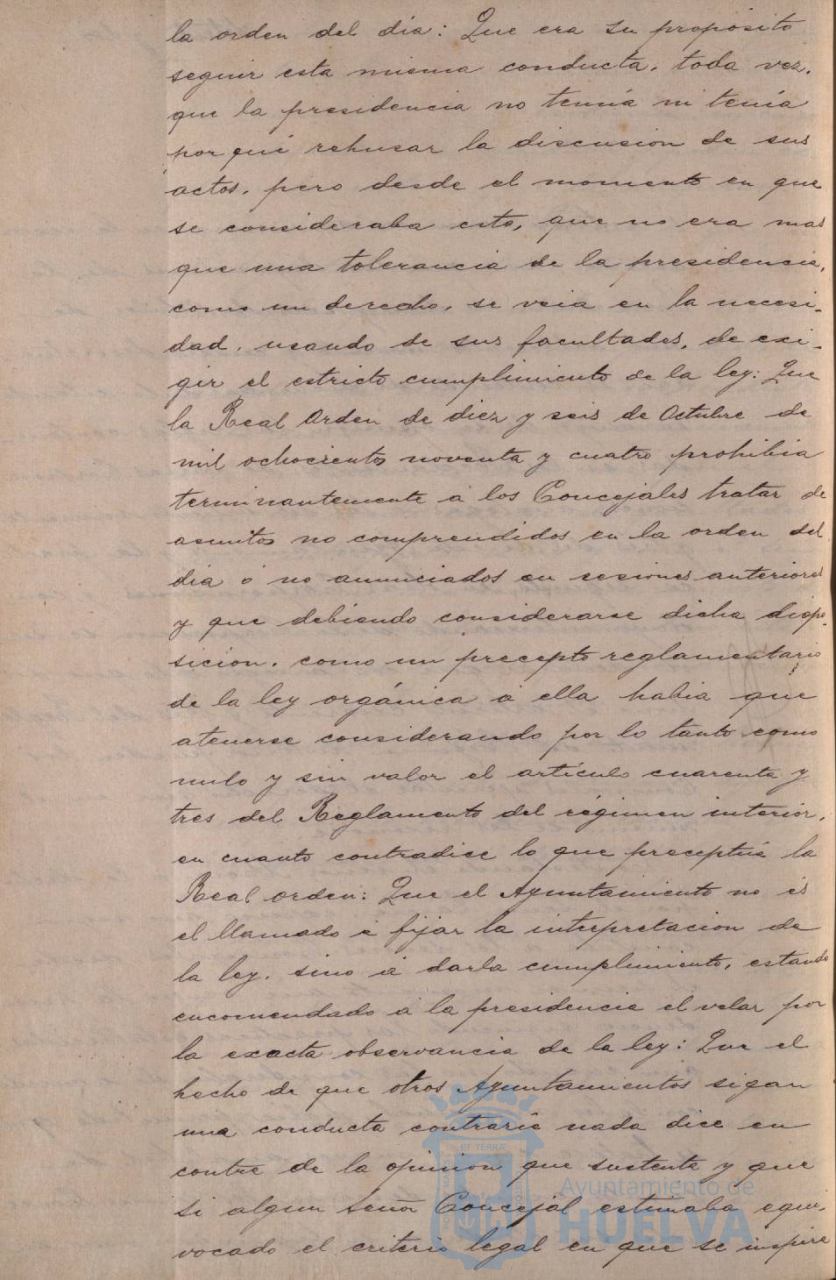 la orden del dia: Que era su propósito
seguir esta misma conducta, toda vez,
que la presidencia no temía ni tenía
por qué rehusar la discusion de sus
actos, pero desde el momento en que
se consideraba esto, que no era mas
que una tolerancia de la presidencia,
como un derecho, se veia en la necesi-
dad, usando de sus facultades, de exi-
gir el estricto cumplimiento de la ley: Que
la Real Orden de diez y seis de Octubre de
mil ochocientos noventa y cuatro prohibia
terminantemente á los Concejales tratar de
asuntos no comprendidos en la orden del
dia ó no anunciados en sesiones anteriores
y que debiendo considerarse dicha dispo-
sicion, como un precepto reglamentario
de la ley orgánica á ella habia que
atenerse considerando por lo tanto como
nulo y sin valor el artículo cuarenta y
tres del Reglamento del régimen interior,
en cuanto contradice lo que preceptúa la
Real orden: Que el Ayuntamiento no es
el llamado á fijar la interpretacion de
la ley, sino á darla cumplimiento, estando
encomendado á la presidencia el velar por
la exacta observancia de la ley: Que el
hecho de que otros Ayuntamientos sigan
una conducta contraria nada dice en
contra de la opinion que sustenta y que
si algun señor Concejal estimaba equi-
vocado el criterio legal en que se inspire
Ayuntamiento de
HUELVA